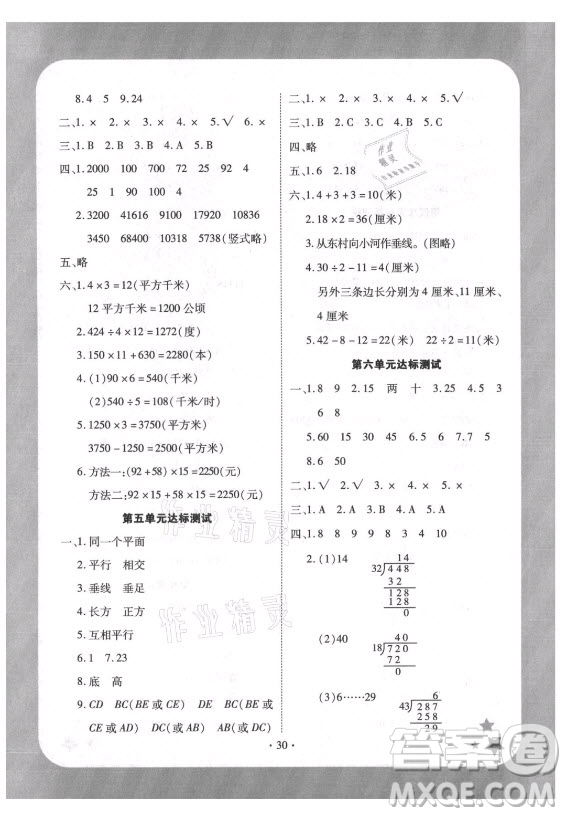 8.4 5 9.24
二、1. × 2. × 3. × 4. × 5. √ 6. ×
三、1. B 2. C 3. A 4. B 5. A
四、1. 2000 100 700 25 92 4
25 1 90 200 221 48
2. 3200 41616 9710 17205 10836
3450 68400 10318 5738(竖式略)
五、略
六、1. 4×3=12(平方千米)
12平方千米=1200公顷
2. 424÷4×12=1272(度)
3. 150×11+630=2280(本)
4. (1)90×6=540(千米)
(2)540÷5=108(千米/时)
5. 1250×3=3750(平方米)
3750-1250=2500(平方米)
6. 方法一:(92+58)×15=2250(元)
方法二:92×15+58×15=2250(元)
第五单元达标测试
一、1. 同一个平面
2. 平行 相交
3. 垂线 垂足
4. 长方 正方
5. 互相平行
6.1 7.23
8. 底 高
9. CD BC(BE或AD) DE BC(BE或
CE或AD) DC(或AB) BC(BE或CE或AD)
二、1. × 2. × 3. × 4. × 5. √
三、1. B 2. C 3. B 4. B 5. C
四、略
五、1. 6 2. 18
六、1. 4+3+3=10(米)
2. 18×2=36(厘米)
3. 从东村向小河作垂线。(图略)
4. 30÷2-11=4(厘米)
另外三条边长分别为4厘米、11厘
米、11厘米
5. 42-8-12=22(厘米) 22÷2=11(厘米)
第六单元达标测试
一、1.8 9 2.15 两 十 3.25 4.5 3
6 8
5.60 15 6.80 20 7.32 38
8.6 50
二、1. √ 2. × 3. √ 4. √ 5. ×
三、1. A 2. C 3. A 4. B 5. C
四、1. 8 8 9 9 8 4 30 10
2. (1)14
14
32 448
32
128
128
0
(2)40
40
18 720
72
0
(3)6……29
6
43 287
258
29
· 30 ·
作业精灵
作业精灵
作业精灵
答案圈
MXQE.COM